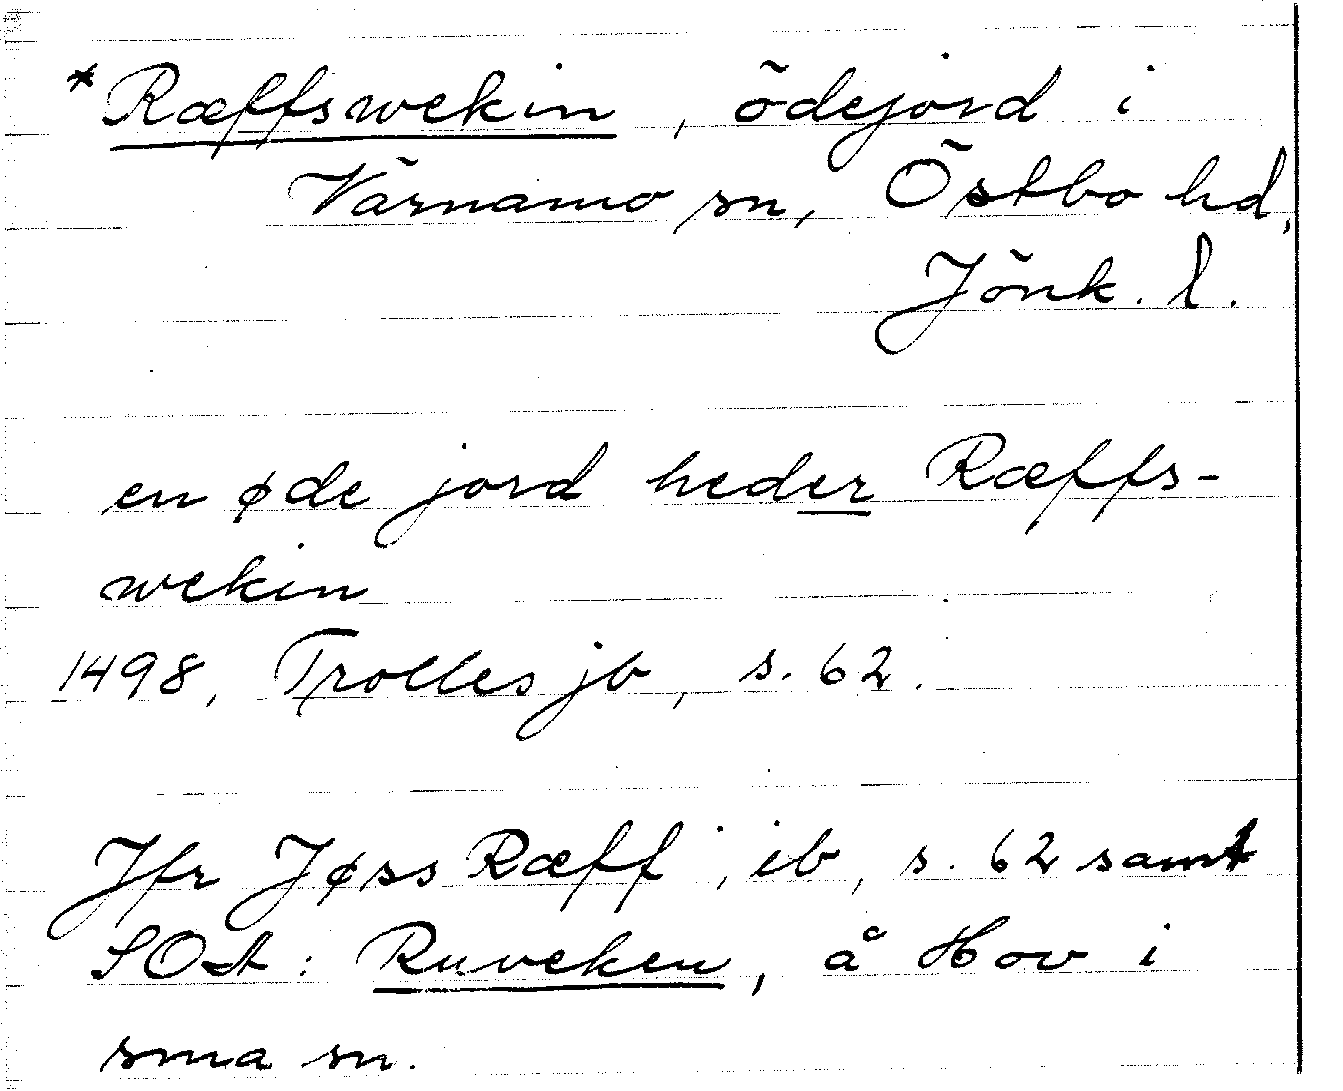 *Ræffswekin, ödejord i
Värnamo sn, Östbo hd,
Jönk. l.
en øde jord heder Ræffs-
wekin
1498, Trolles jb, s. 62.
Jfr Jøss Ræff, ib, s. 62 samt
SOA: Ruveken, å Hov i
sma sn.